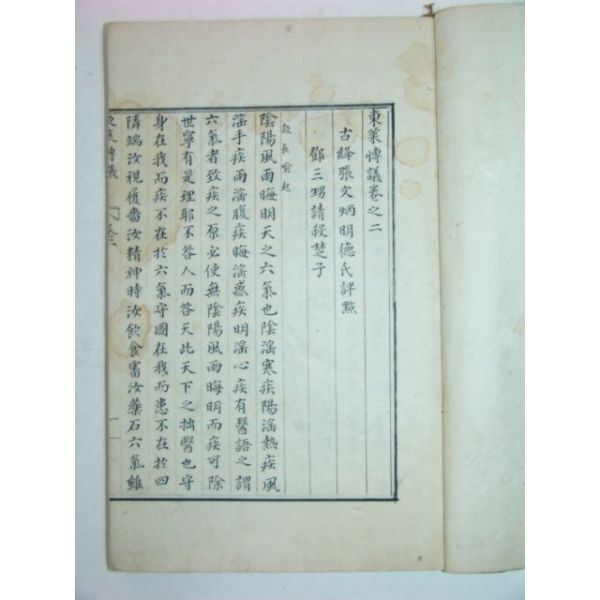 東萊博議卷之二
古絳張文炳明德氏評點
鄧三甥請殺楚子
設長喻起
陰陽風雨晦明天之六氣也陰滛寒疾陽滛熱疾風
滛手疾雨滛腹疾晦滛惑疾明滛心疾有醫語之謂
六氣者致疾之原必使無陰陽風雨晦明而疾可除
世寧有是理耶不咎人而咎天此天下之拙醫也守
身在我而疾不在於六氣守國在我而患不在於四
隣端汝視履嗇汝精神時汝飲食審汝藥石六氣雖
東萊博議
卷二
一